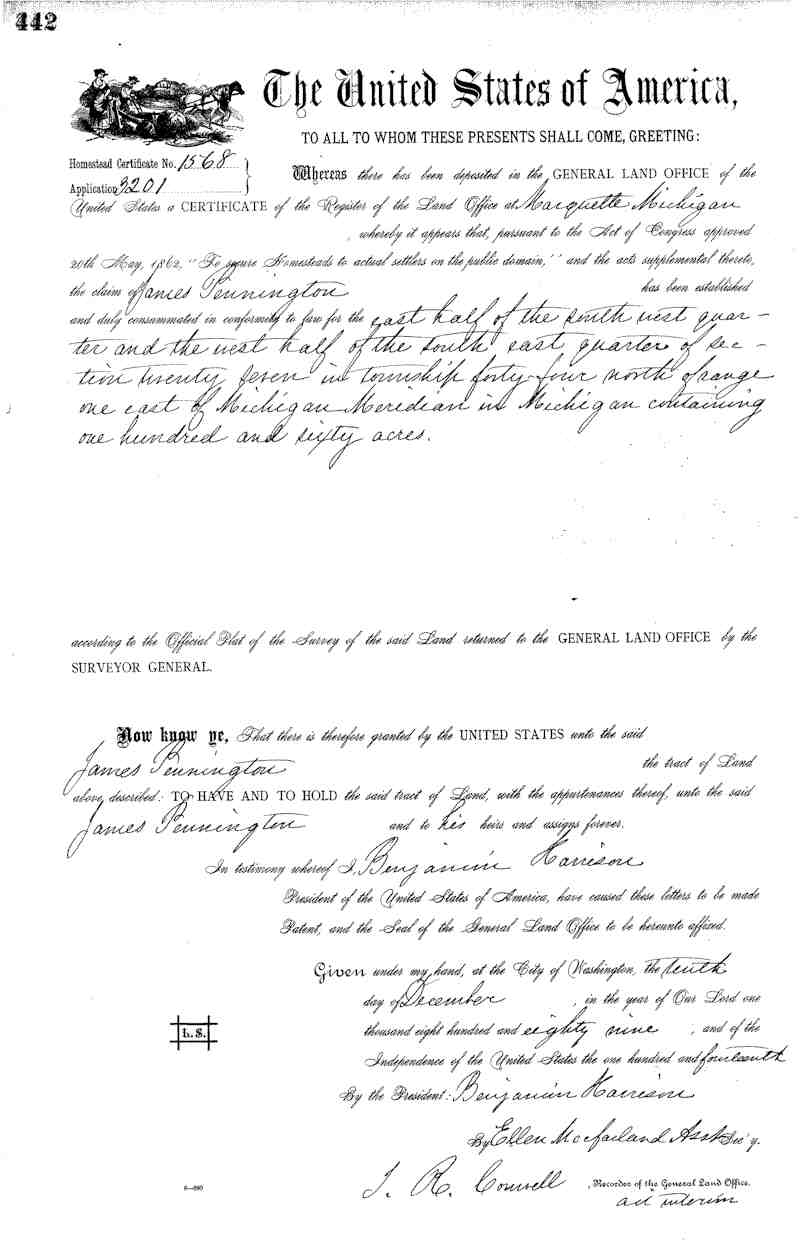 442
The United States of America,
TO ALL TO WHOM THESE PRESENTS SHALL COME, GREETING:
Homestead Certificate No. 1568
Application 3201
Whereas there has been deposited in the GENERAL LAND OFFICE of the
United States a CERTIFICATE of the Register of the Land Office at Marquette Michigan
, whereby it appears that, pursuant to the Act of Congress approved
20th May, 1862, "To secure Homesteads to actual settlers on the public domain," and the acts supplemental thereto,
the claim of James Pennington has been established
and duly consummated in conformity to law for the east half of the south west quar-
ter and the west half of the south east quarter of sec-
tion twenty seven in township forty-four north of range
one east of Michigan Meridian in Michigan containing
one hundred and sixty acres.
according to the Official Plat of the Survey of the said Land returned to the GENERAL LAND OFFICE by the
SURVEYOR GENERAL.
Now know ye, That there is therefore granted by the UNITED STATES unto the said
James Pennington the tract of Land
above described: TO HAVE AND TO HOLD the said tract of Land, with the appurtenances thereof, unto the said
James Pennington and to his heirs and assigns forever.
In testimony whereof I, Benjamin Harrison
President of the United States of America, have caused these letters to be made
Patent, and the Seal of the General Land Office to be hereunto affixed.
Given under my hand, at the City of Washington, the tenth
day of December , in the year of Our Lord one
thousand eight hundred and eighty nine , and of the
Independence of the United States the one hundred and fourteenth
L. S.
By the President: Benjamin Harrison
By Ellen Macfarland Asst Sec'y.
J. R. Conwell , Recorder of the General Land Office.
ad interim